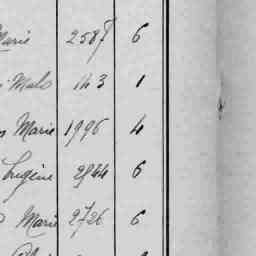 Marie 2587 6
Malo 143 1
Marie 1996 4
Eugène 2944 6
Marie 2726 6